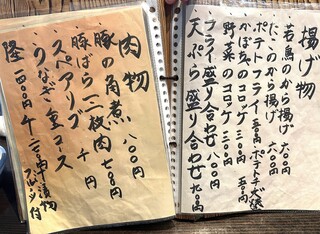 揚げ物
若鳥のから揚げ 六〇〇円
たこのから揚げ 六〇〇円
ポテトフライ 三五〇円
かぼちゃのコロッケ 三五〇円
野菜のコロッケ 三〇〇円
フライ盛り合わせ 八〇〇円
天ぷら盛り合わせ 九〇〇円
肉物
豚の角煮 八〇〇円
豚ばら二枚肉 七〇〇円
スペアリブ 千円
うなぎ重コース
フルーツ付